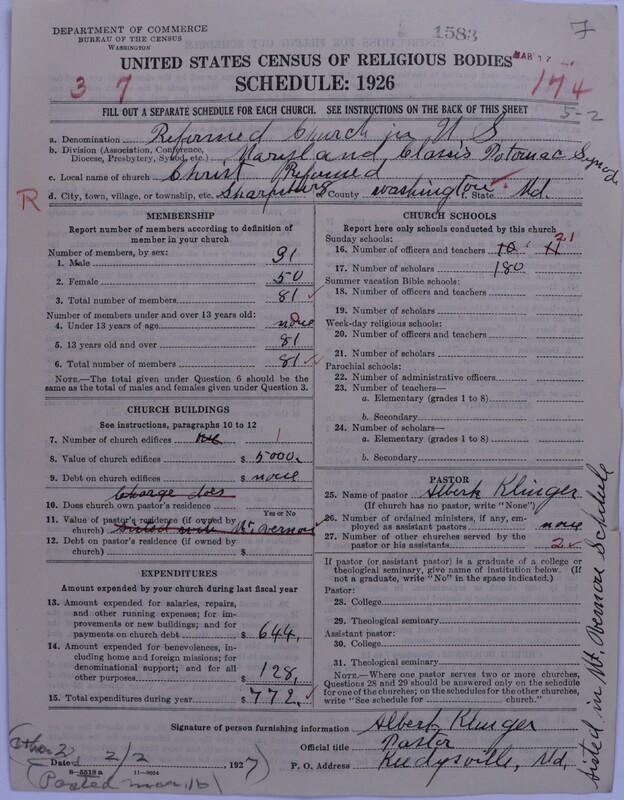 DEPARTMENT OF COMMERCE
BUREAU OF THE CENSUS
WASHINGTON
1583
7
UNITED STATES CENSUS OF RELIGIOUS BODIES
MAR 17
SCHEDULE: 1926
3 7
174
5-2
FILL OUT A SEPARATE SCHEDULE FOR EACH CHURCH. SEE INSTRUCTIONS ON THE BACK OF THIS SHEET
a. Denomination Reformed Church in U S
b. Division (Association, Conference, Diocese, Presbytery, Synod, etc.) Maryland, Classis Potomac Synod
c. Local name of church Christ Reformed
R
d. City, town, village, or township, etc. Sharpsburg County Washington State Md.
MEMBERSHIP
Report number of members according to definition of member in your church
Number of members, by sex:
1. Male 31
2. Female 50
3. Total number of members 81
Number of members under and over 13 years old:
4. Under 13 years of age none 0
5. 13 years old and over 81
6. Total number of members 81
NOTE.—The total given under Question 6 should be the same as the total of males and females given under Question 3.
CHURCH BUILDINGS
See instructions, paragraphs 10 to 12
7. Number of church edifices 1
8. Value of church edifices $ 5000.
9. Debt on church edifices $ none
Charge does
10. Does church own pastor's residence
Yes or No
11. Value of pastor's residence (if owned by church) Listed with Mt. Vernon
12. Debt on pastor's residence (if owned by church) $
EXPENDITURES
Amount expended by your church during last fiscal year
13. Amount expended for salaries, repairs, and other running expenses; for improvements or new buildings; and for payments on church debt $ 644.
14. Amount expended for benevolences, including home and foreign missions; for denominational support; and for all other purposes $ 128.
15. Total expenditures during year $ 772.
CHURCH SCHOOLS
Report here only schools conducted by this church
Sunday schools:
16. Number of officers and teachers 10 11 21
17. Number of scholars 180
Summer vacation Bible schools:
18. Number of officers and teachers
19. Number of scholars
Week-day religious schools:
20. Number of officers and teachers
21. Number of scholars
Parochial schools:
22. Number of administrative officers
23. Number of teachers—
a. Elementary (grades 1 to 8)
b. Secondary
24. Number of scholars—
a. Elementary (grades 1 to 8)
b. Secondary
PASTOR
25. Name of pastor Albert Klinger
(If church has no pastor, write "None")
26. Number of ordained ministers, if any, employed as assistant pastors none
27. Number of other churches served by the pastor or his assistants 2
If pastor (or assistant pastor) is a graduate of a college or theological seminary, give name of institution below. (If not a graduate, write "No" in the space indicated.)
Pastor:
28. College
29. Theological seminary
Assistant pastor:
30. College
31. Theological seminary
NOTE.—Where one pastor serves two or more churches, Questions 28 and 29 should be answered only on the schedule for one of the churches; on the schedules for the other churches, write "See schedule for church."
Listed in Mt. Vernon Schedule
Signature of person furnishing information Albert Klinger
Official title Pastor
P. O. Address Keedysville, Md.
(other 2
Dated 2/2, 1927)
8—5518a 11—9054
(Posted mar. 16)